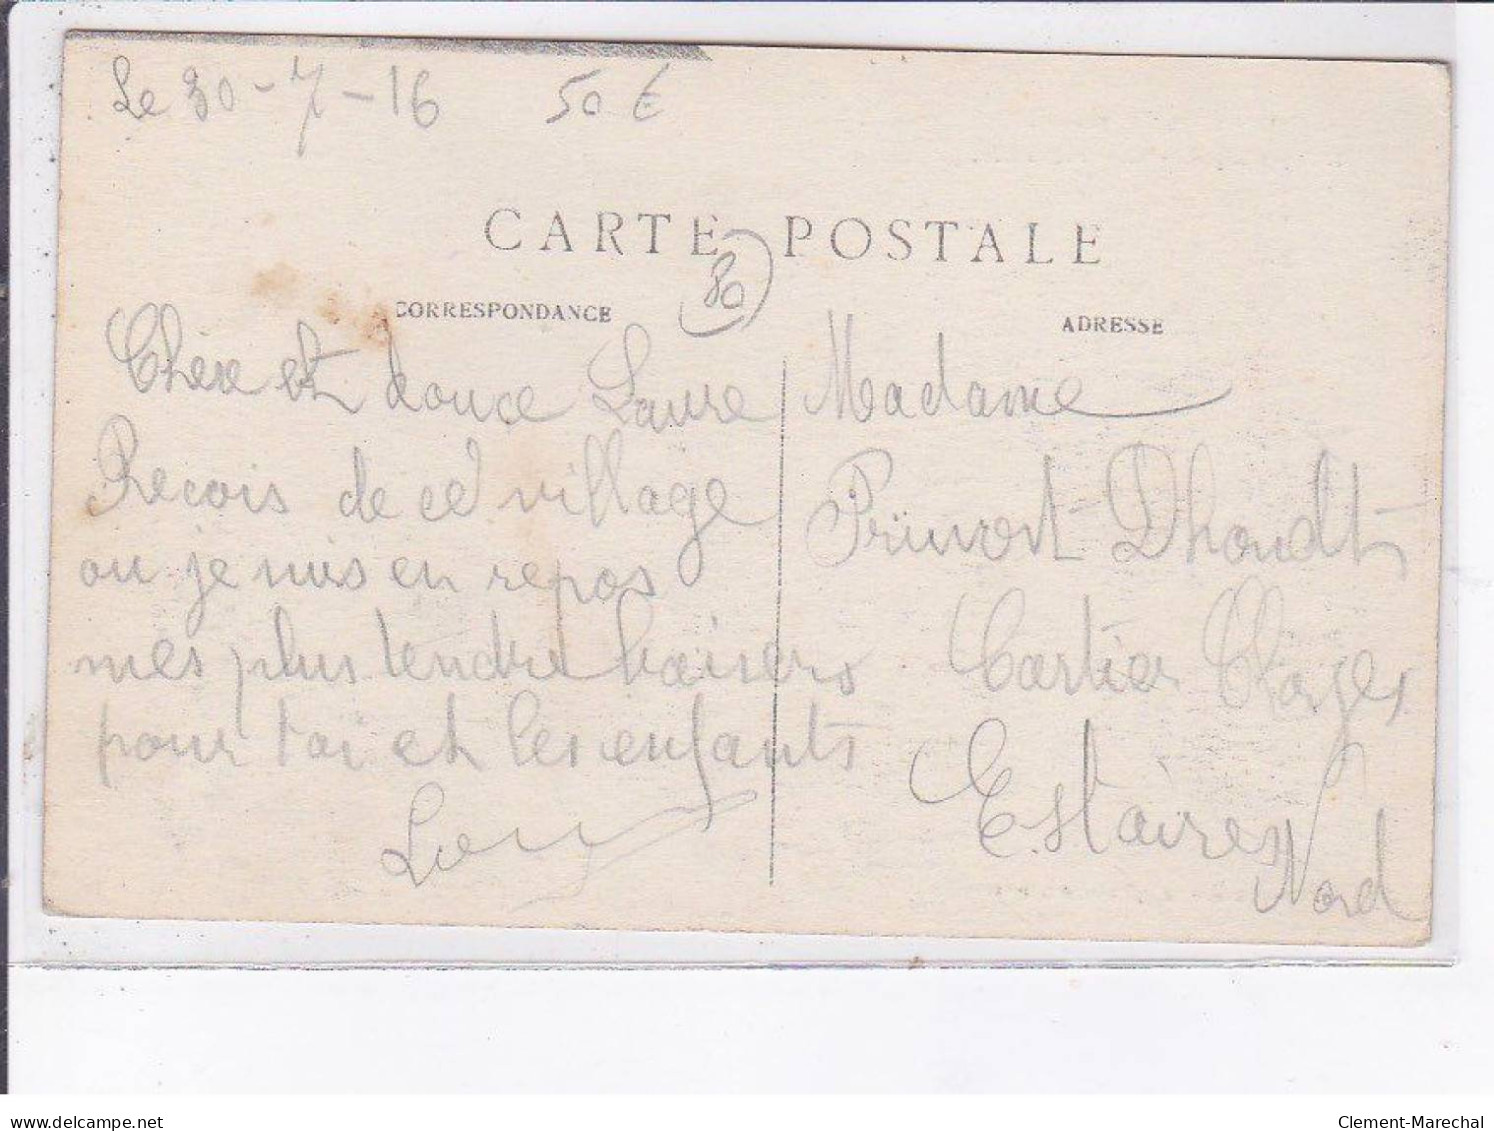 Le 30-7-16 50 €
CARTE POSTALE
80
CORRESPONDANCE
ADRESSE
Chère et douce Laure
Recois de ce village
ou je suis en repos
mes plus tendre baisers
pour toi et les enfants
Madame
Pruvost Dhondt
Cartier
Estaires
Nord
delcampe.net
Clement-Marechal